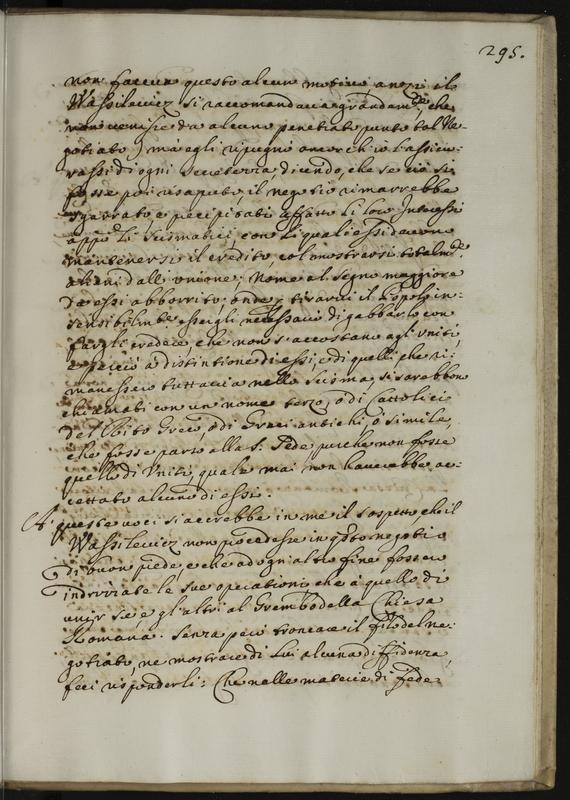 295.
non faccia questo alcun motivo anzi il
Wassilewicz si raccomandava grandam.te che
non venisse da alcuno penetrato punto tal Ne-
gotiato) ma egli ripugnò ancorch'io l'assicu-
rassi di ogni secretezza, dicendo, che se ciò si
fosse poi risaputo, il negotio rimarrebbe
sgarrato e precipitati affatto li loro Interessi
app.o li scismatici, con li quali essi davano
mantenersi il credito, col mostrarsi totalm.te
alieni dall'unione; Nome al segno maggiore
da essi abborrito; onde p tirarvi il Popolo in-
sensibilm.te esseigli necessario di gabbarlo con
fargli credere, che non s'accostano agl'Uniti,
e perciò a distintione di essi, e di quelli che ri-
manessero tuttavia nello scisma, si sarebbono
chiamati con un nome terzo, ò di Cattolici
del Rito Greco, ò di Greci antichi, ò simile,
che fosse parso alla S. Sede purche non fosse
quello di Uniti, quale mai non haverebbe ac-
cettato alcuno di essi.
A' queste voci si accrebbe in me il sospetto, che il
Wassilewicz non procedesse in q.sto negotio
di buon piede, e che ad ogni altro fine fossero
indrizzate le sue operationi, che à quello di
unir se e gl'altri al Grembo della Chiesa
Romana. Senza però troncare il filo del ne-
gotiato, ne mostrare di lui alcuna diffidenza,
feci risponderli: Che nelle materie di fede